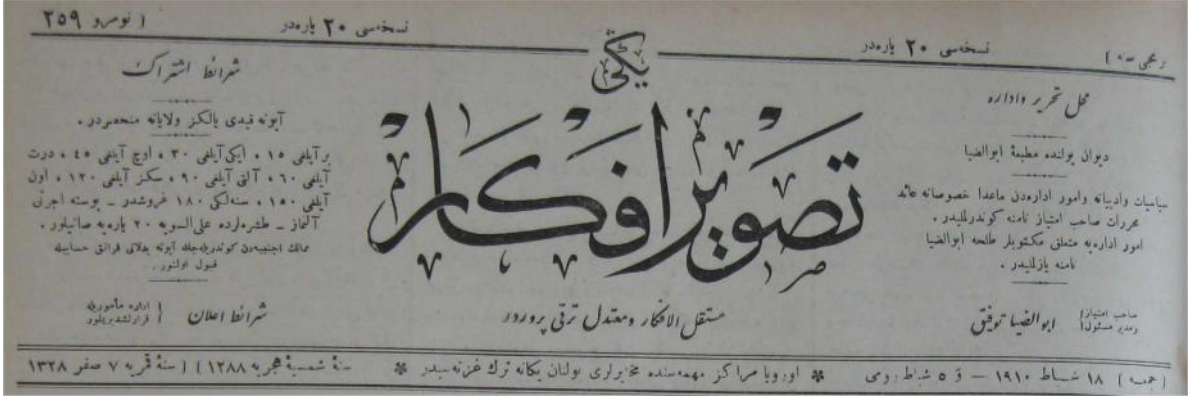 برنجی سنه ]
نسخه‌سی ۲۰ پاره‌در
نسخه‌سی ۲۰ پاره‌در
[ نومرو ۲۵۹
محل تحریر واداره
دیوان یولنده مطبعهٔ ابوالضیا
سیاسیات وادبیاته وامور اداره‌دن ماعدا خصوصاته عائد
محررات صاحب امتیاز نامنه کوندرلمیدر .
امور اداره‌یه متعلق مکتوبلر طلحه ابوالضیا
نامنه یازلمیدر .
صاحب امتیاز
ومدیر مسئول
ابوالضیا توفیق
یکی
تصویر افکار
مستقل الافکار ومعتدل ترقی پروردر
شرائط اشتراك
آبونه قیدی یالکز ولایاته منحصردر .
بر آیلغی ۱۵ ، ایکی آیلغی ۳۰ ، اوچ آیلغی ٤٥ ، درت
آیلغی ٦۰ ، آلتی آیلغی ۹۰ ، سکز آیلغی ۱۲۰ ، اون
آیلغی ۱۵۰ ، سنه‌لکی ۱۸۰ غروشدر ـ پوسته اجرتی
آلنماز ـ طشره‌لرده علی‌السویه ۲۰ پاره‌یه صاتیلور .
ممالك اجنبیه‌دن کوندریله‌جك آبونه بدلاتی فرانق حسابیله
قبول اولنور .
شرائط اعلان
اداره مأموریله
قرارلشدیریلور
( جمعه ) ۱۸ شباط ۱۹۱۰ — و ٥ شباط رومی ❋ اوروپا مراکز مهمه‌سنده مخابرلری بولنان یکانه ترك غزته‌سیدر ❋ سنهٔ شمسیهٔ هجریه ۱۲۸۸ ) ( سنهٔ قمریه ۷ صفر ۱۳۲۸